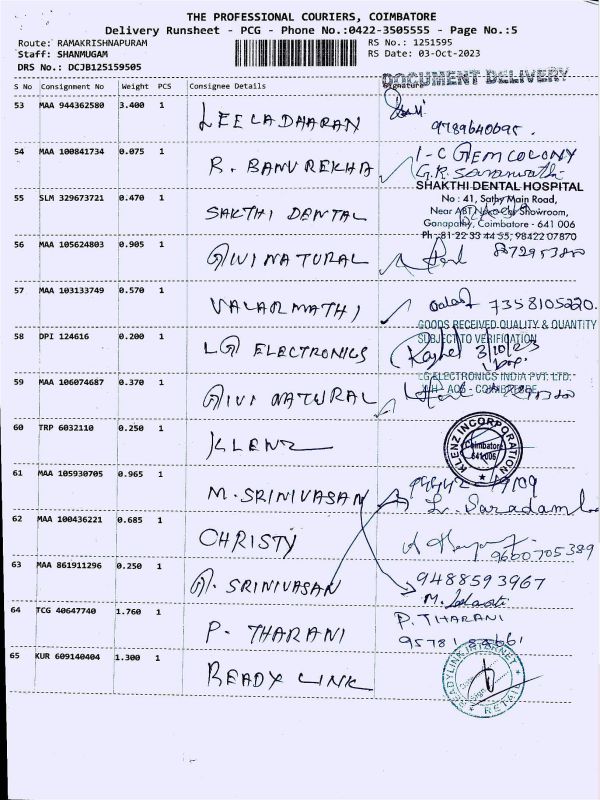 THE PROFESSIONAL COURIERS, COIMBATORE
Delivery Runsheet - PCG - Phone No.:0422-3505555 - Page No.:5
Route: RAMAKRISHNAPURAM RS No.: 1251595
Staff: SHANMUGAM RS Date: 03-Oct-2023
DRS No.: DCJB125159505
DOCUMENT DELIVERY
S No Consignment No Weight PCS Consignee Details Signature
53 MAA 944362580 3.400 1 LEELADHARAN
9789640695.
54 MAA 100841734 0.075 1 R. BANUREKHA
1-C GEM COLONY
G.R. Saranwathi
55 SLM 329673721 0.470 1 SAKTHI DENTAL
SHAKTHI DENTAL HOSPITAL
No : 41, Sathy Main Road,
Near ABT Showroom,
Ganapathy, Coimbatore - 641 006
Ph : 81 22 33 44 55, 98422 07870
56 MAA 105624803 0.905 1 GIVI NATURAL
57 MAA 103133749 0.570 1 VALARMATHI
7358105220.
58 DPI 124616 0.200 1 LG ELECTRONICS
GOODS RECEIVED QUALITY & QUANTITY
SUBJECT TO VERIFICATION
3/10/23
1 box.
LG ELECTRONICS INDIA PVT. LTD.
59 MAA 106074687 0.370 1 GIVI NATURAL
60 TRP 6032110 0.250 1 KLENZ
KLENZ INCORPORATION
Coimbatore
641 006
61 MAA 105930705 0.965 1 M. SRINIVASAN
62 MAA 100436221 0.685 1 CHRISTY
9600705389
63 MAA 861911296 0.250 1 G. SRINIVASAN
9488593967
64 TCG 40647740 1.760 1 P. THARANI
P. THARANI
65 KUR 609140404 1.300 1 READY LINK
READYLINK INTERNET
RETAIL